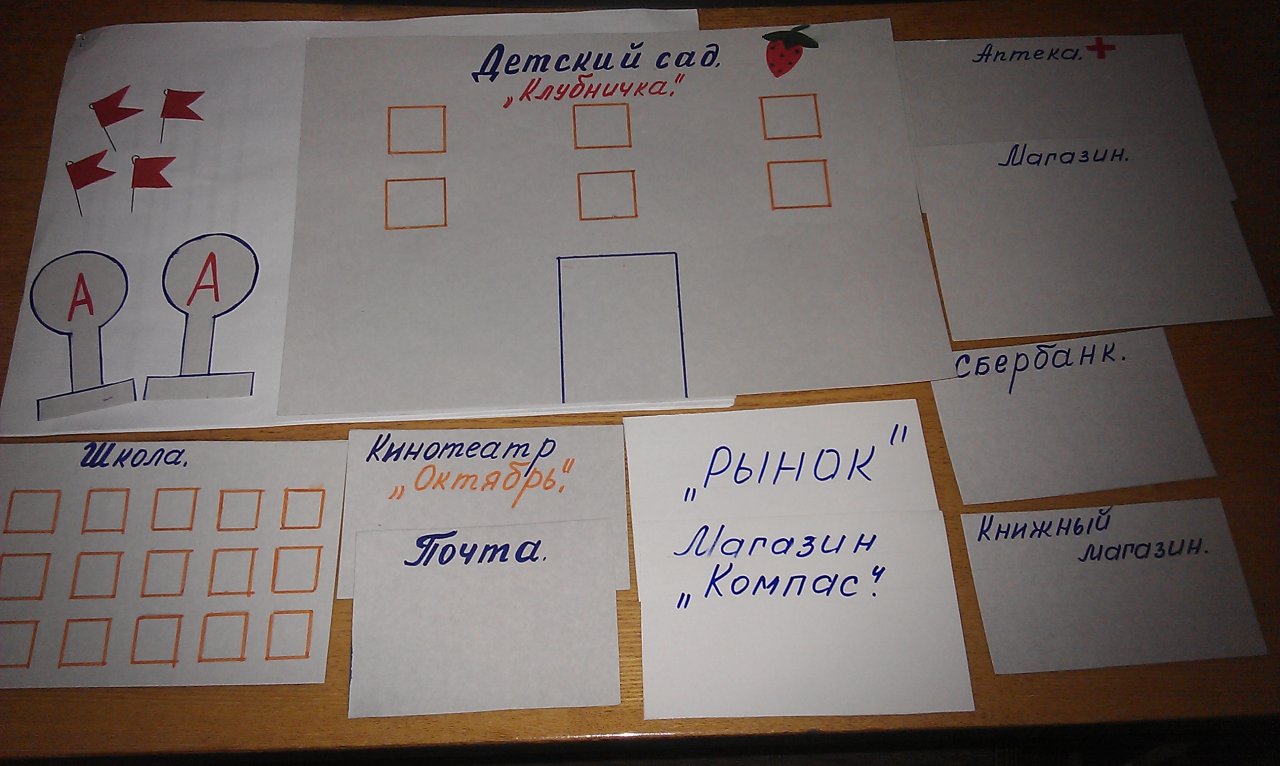 Детский сад.
„Клубничка".
Аптека.
Магазин.
А
А
Сбербанк.
Школа.
Кинотеатр
„Октябрь".
„Рынок"
Почта.
Магазин
„Компас".
Книжный
магазин.